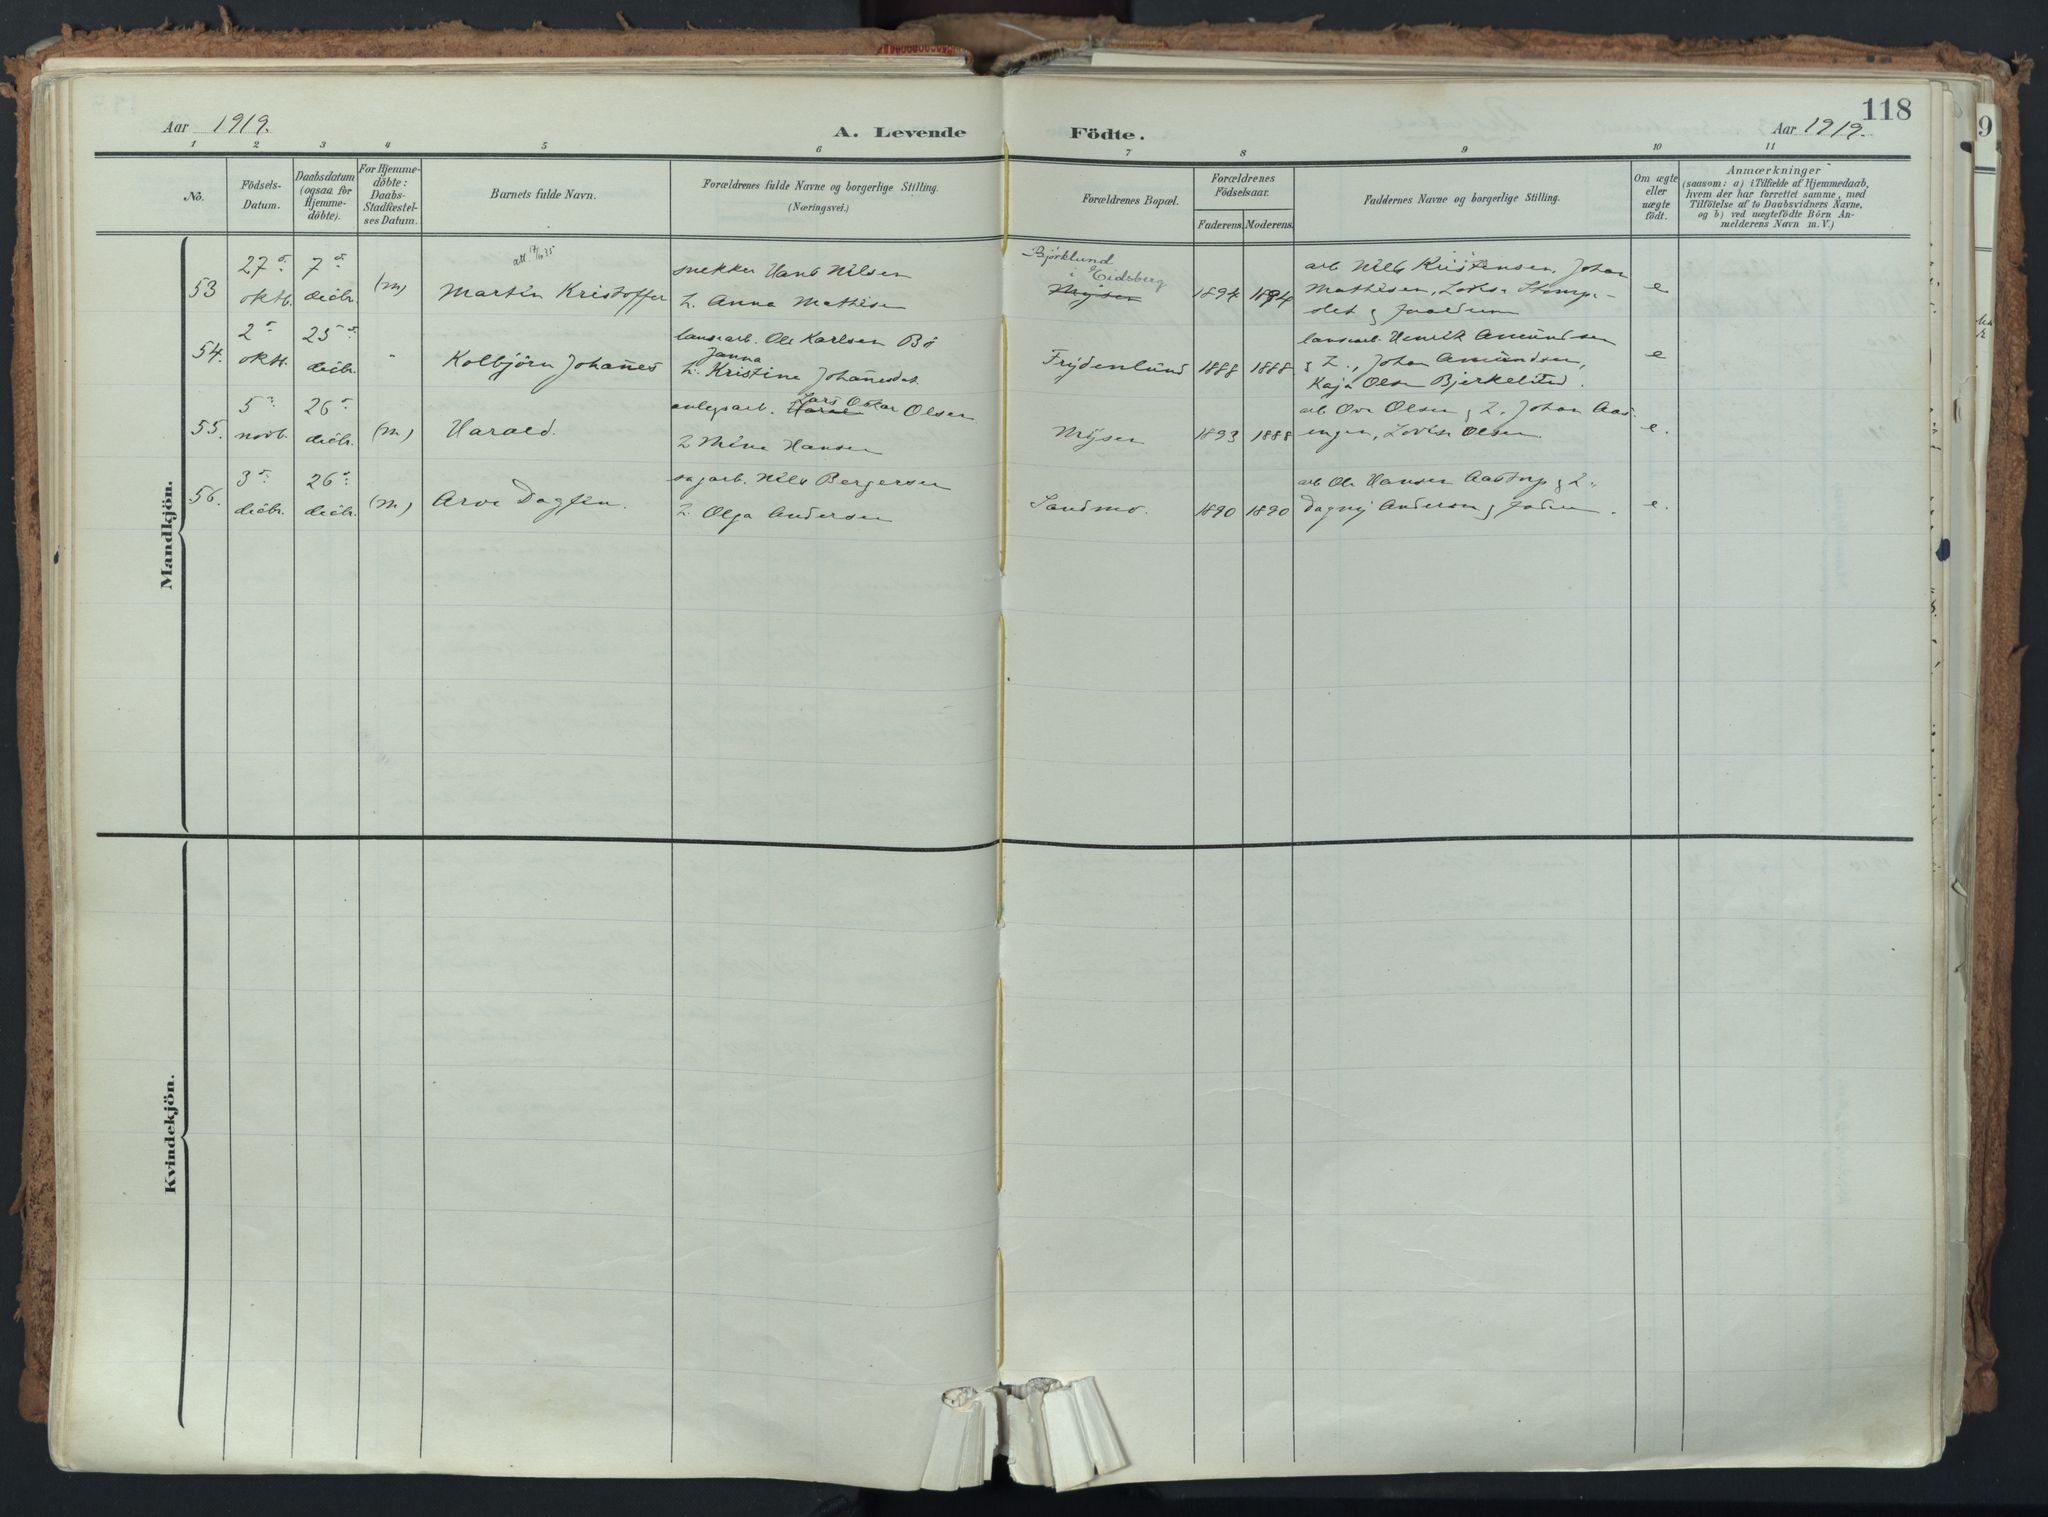 118
Aar 1919.
A. Levende Födte.
Aar 1919.
1 2 3 4 5 6 7 8 9 10 11
No.
Födsels-
Datum.
Daabsdatum
(ogsaa for
Hjemme-
döbte).
For Hjemme-
döbte:
Daabs-
Stadfæstel-
ses Datum.
Barnets fulde Navn.
Forældrenes fulde Navne og borgerlige Stilling.
(Næringsvei.)
Forældrenes Bopæl.
Forældrenes
Födselsaar.
Faderens. Moderens.
Faddernes Navne og borgerlige Stilling.
Om ægte
eller
uægte
födt.
Anmærkninger
(saasom: a) i Tilfælde af Hjemmedaab,
hvem der har forrettet samme, med
Tilföielse af to Daabsvidners Navne,
og b) ved uægtefödte Börn An-
melderens Navn m. V.)
Mandkjön.
53 27 oktb. 7 decbr. (m) Martin Kristoffer
snekker Hans Nilsen
h. Anna Mathisen
Björklund
i Eidsberg
Mysen
1894 1894
arb Nils Kristensen, Johan
Mathisen, Lovise
e
54. 2 oktb. 25 decbr. " Kolbjörn Johannes
Ole Karlsen Bö
Janna
h. Kristine Johannesdat.
Frydenlund 1888 1888
Henrik Amundsen
g h., Johan Amundsen,
Kaja Olsen Bjerkelund.
e
55. 5 novb. 26 decbr. (m) Harald.
anlegsarb. Lars Oskar Olsen
h Mina Hansen
Mysen 1893 1888
arb Ove Olsen g h. Johan Aas-
engen, Lovise Olsen.
e.
56. 3 decbr. 26 decbr. (m) Arve Dagfin.
sagarb. Nils Bergersen
h Olga Andersen
Sandmo. 1890 1890
arb Ole Hansen Aastorp g h.
Dagny Andersen g faderen.
e.
Kvindekjön.